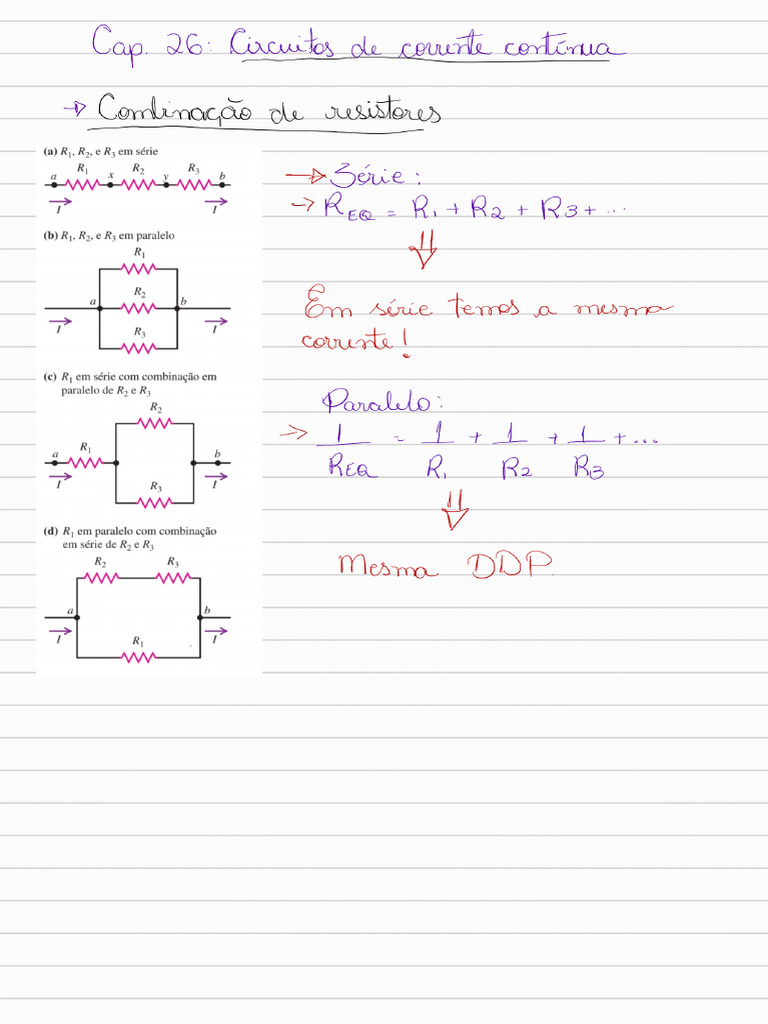 Cap. 26: Circuitos de corrente contínua
→ Combinação de resistores
(a) R1, R2, e R3 em série
R1 R2 R3
a x y b
I I
(b) R1, R2, e R3 em paralelo
R1
R2
a b
I I
R3
(c) R1 em série com combinação em
paralelo de R2 e R3
R2
R1
a b
I I
R3
(d) R1 em paralelo com combinação
em série de R2 e R3
R2 R3
a b
I I
R1
→ Série:
→ REQ = R1 + R2 + R3 + ...
⇓
Em série temos a mesma
corrente!
Paralelo:
→ 1/REQ = 1/R1 + 1/R2 + 1/R3 + ...
⇓
Mesma DDP.